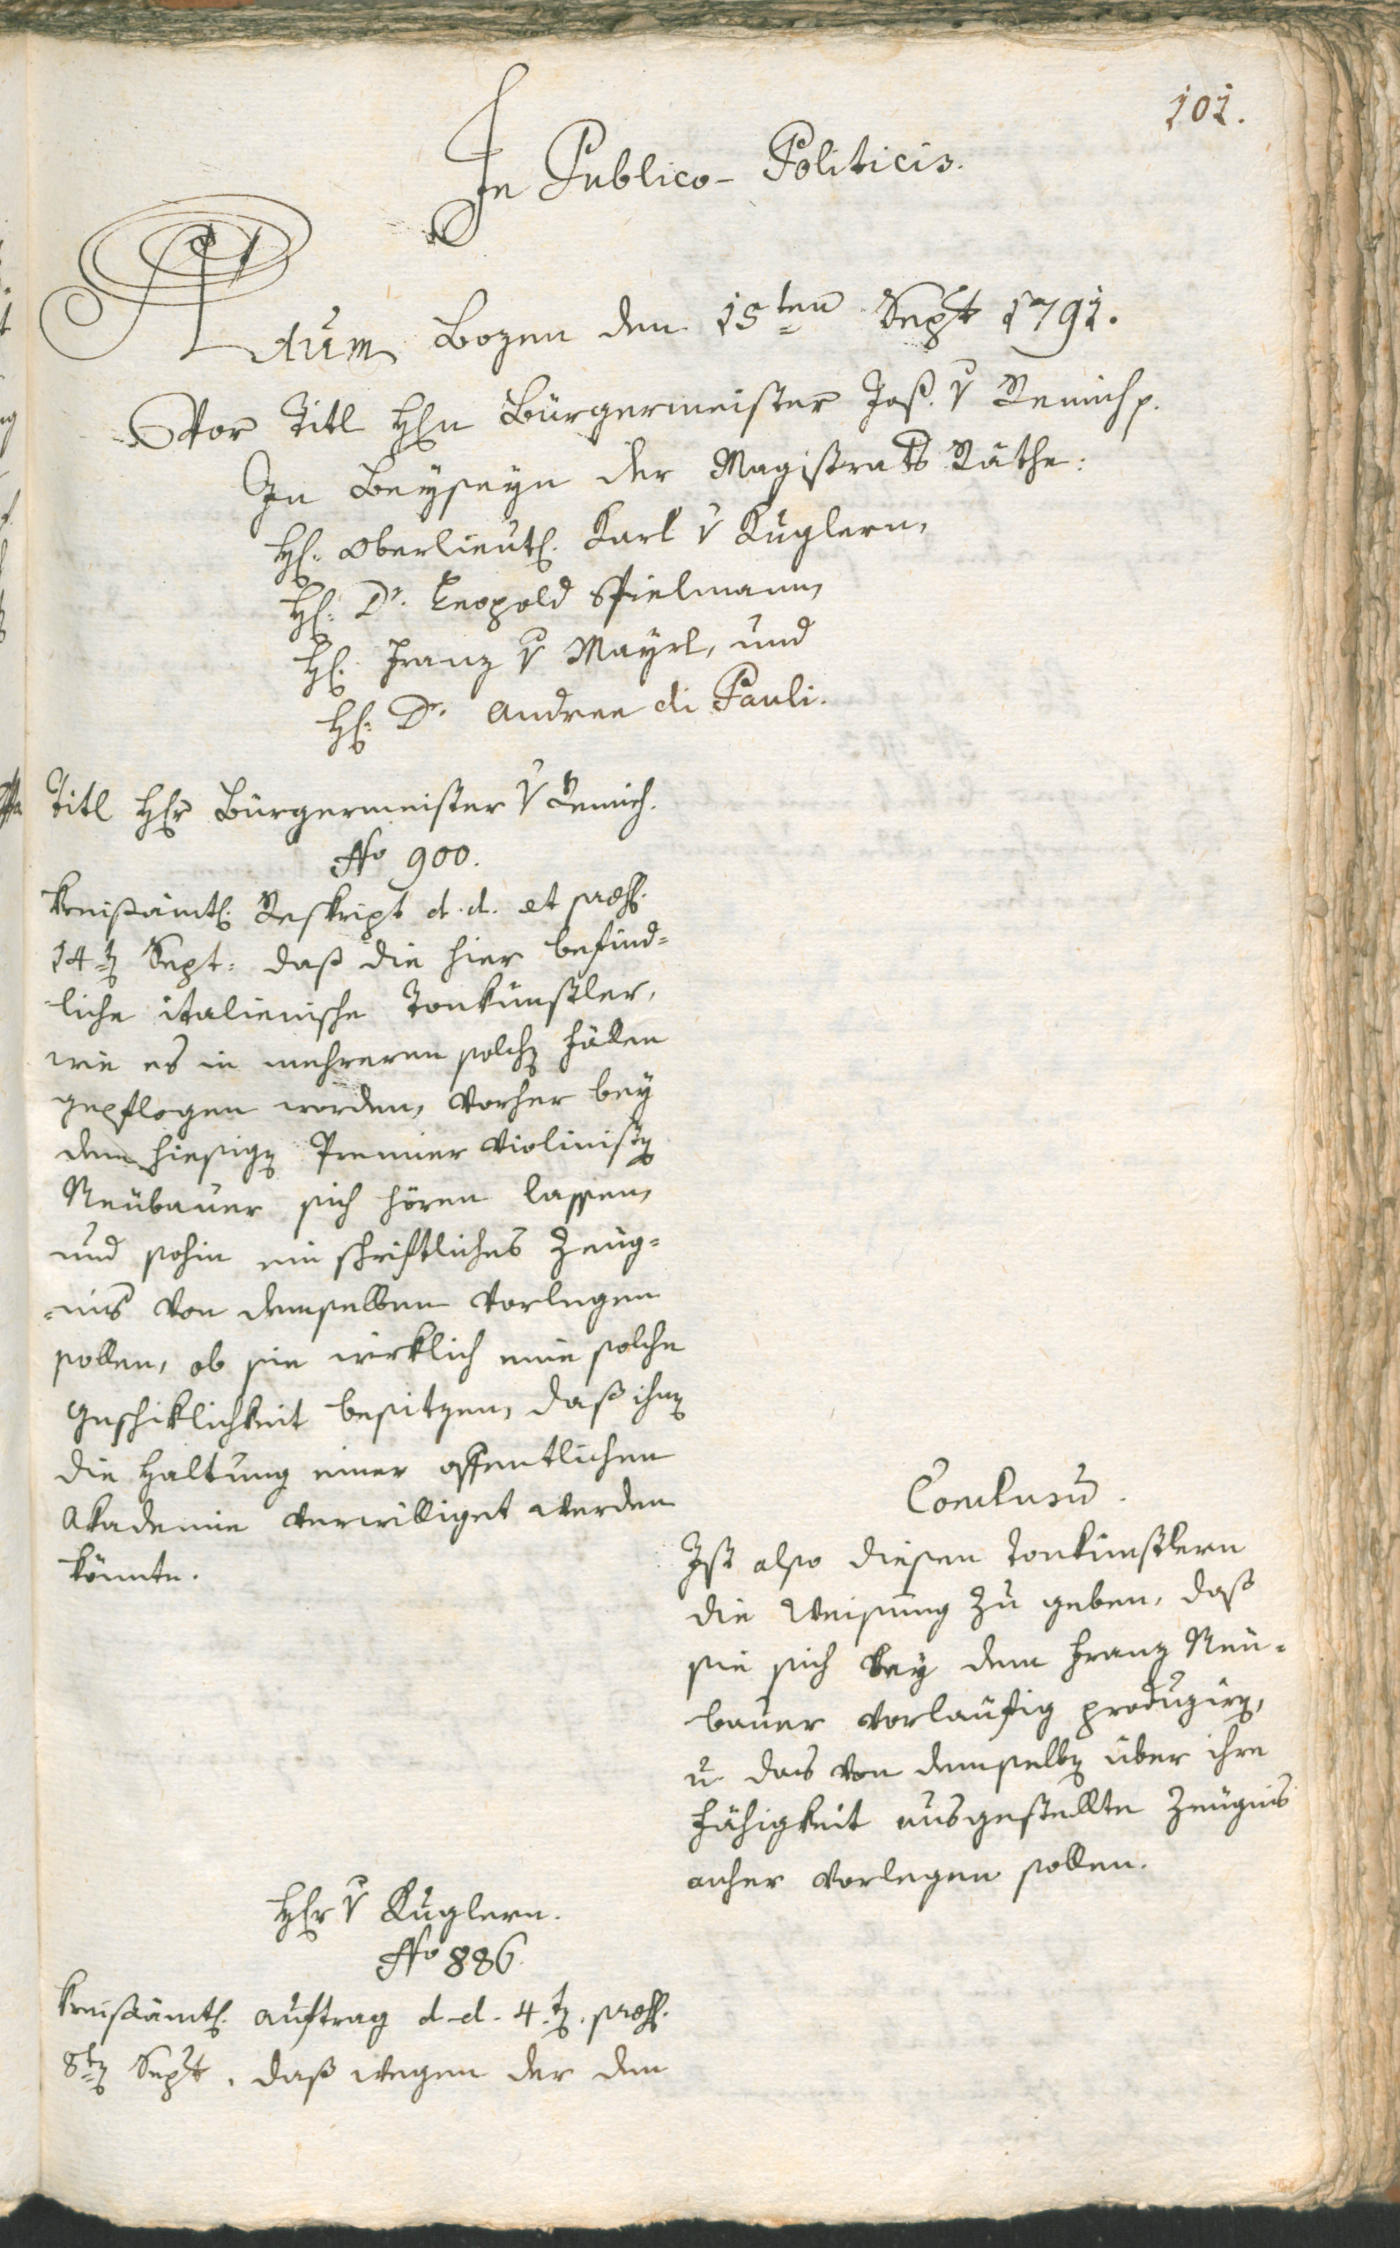 101.
In Publico-Politicis.
Actum Bozen den 15ten Sept 1791.
Vor Titl Hℓn Bürgermeister Jos. v Remich p.
In Beyseyn der Magistrats Räthe:
Hℓ. Oberlieutℓ. Karl v Kuglern,
Hℓ. Dr. Leopold Spielmann,
Hℓ. Franz v Mayrl, und
Hℓ. Dr. Andree di Pauli.
Titl Hℓr Bürgermeister v Remich.
No 900.
Kreisämtℓ. Reskript d. d. et præs.
14tn Sept: daß die hier befind=
liche italienische Tonkünstler,
wie es in mehreren solchn Fällen
gepflogen worden, vorher bey
dem hiesign Premier Violinistn
Neübauer sich hören lassen,
und sohin ein schriftliches Zeug=
=nis von demselben vorlegen
sollen, ob sie wirklich eine solche
Geschiklichkeit besitzen, daß ihnn
die Haltung einer offentlichen
Akademie verwilliget werden
könnte.
Conclusū.
Ist also diesen Tonkünstlern
die Weisung zu geben, daß
sie sich bey dem Franz Neü=
bauer vorläufig produzirn,
u das von demselbn über ihre
Fähigkeit ausgestellte Zeugnis
anher vorlegen sollen.
Hℓr v Kuglern.
No 886.
Kreisämtℓ. Auftrag d. d. 4.tn. præs.
8tn Sept. daß wegen der den